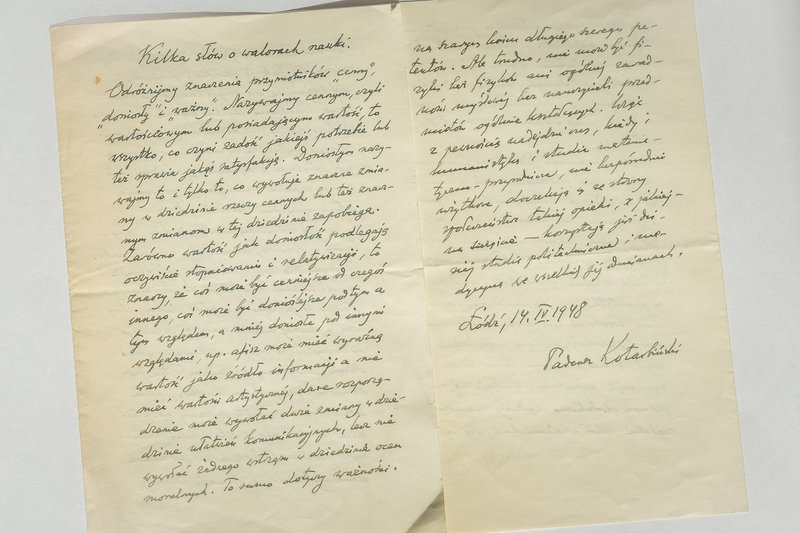 Kilka słów o walorach nauki.
Odróżnijmy znaczenia przymiotników „cenny”,
„doniosły” i „ważny”. Nazywajmy cennym, czyli
wartościowym lub posiadającym wartość, to
wszystko, co czyni zadość jakiejś potrzebie lub
też sprawia jakąś satysfakcję. Doniosłym nazy-
wajmy to i tylko to, co wywołuje znaczne zmia-
ny w dziedzinie rzeczy cennych lub też znacz-
nym zmianom w tej dziedzinie zapobiega.
Zarówno wartość jak doniosłość podlegają
oczywiście stopniowaniu i relatywizacji, to
znaczy, że coś może być cenniejsze od czegoś
innego, coś może być donioślejsze pod tym a
tym względem, a mniej doniosłe pod innymi
względami, np. afisz może mieć wyraźną
wartość jako źródło informacji a nie
mieć wartości artystycznej, dane rozporzą-
dzenie może wywołać duże zmiany w dzie-
dzinie ułatwień komunikacyjnych, lecz nie
wywołać żadnego wstrząsu w dziedzinie ocen
moralnych. To samo dotyczy ważności.
na szarym końcu długiego szeregu pe-
tentów. Ale trudno, nie może być fi-
zyki bez fizyków ani ogólnej zarad-
ności myślowej bez nauczycieli przed-
miotów ogólnie kształcących. Więc
z pewnością nadejdzie czas, kiedy i
humanistyka i studia matema-
tyczno-przyrodnicze, nie bezpośrednio
użytkowe, doczekają się ze strony
społeczeństwa takiej opieki, z jakiej –
na szczęście – korzystają już dzi-
siaj studia politechniczne i me-
dycyna we wszelkich jej odmianach.
Łódź, 14.IV.1948
Tadeusz Kotarbiński